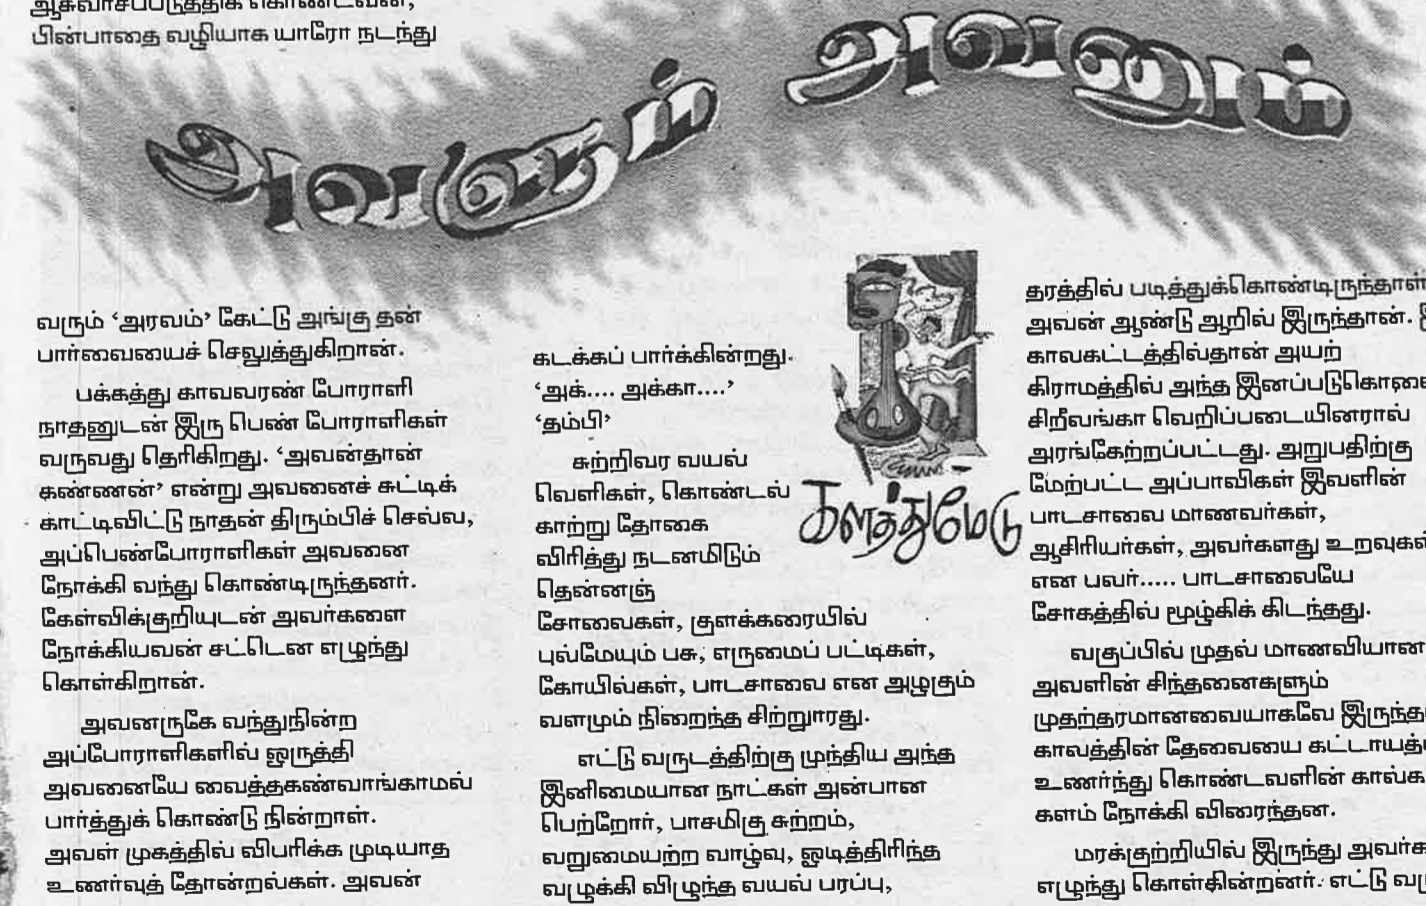 ஆசுவாசப்படுத்திக் கொண்டவன்,
பின்பாதை வழியாக யாரோ நடந்து
அவளும் அவனும்
வரும் ‘அரவம்’ கேட்டு அங்கு தன்
பார்வையைச் செலுத்துகிறான்.
பக்கத்து காவலரண் போராளி
நாதனுடன் இரு பெண் போராளிகள்
வருவது தெரிகிறது. ‘அவன்தான்
கண்ணன்’ என்று அவனைச் சுட்டிக்
காட்டிவிட்டு நாதன் திரும்பிச் செல்ல,
அப்பெண்போராளிகள் அவனை
நோக்கி வந்து கொண்டிருந்தனர்.
கேள்விக்குறியுடன் அவர்களை
நோக்கியவன் சட்டென எழுந்து
கொள்கிறான்.
அவனருகே வந்துநின்ற
அப்போராளிகளில் ஒருத்தி
அவனையே வைத்தகண்வாங்காமல்
பார்த்துக் கொண்டு நின்றாள்.
அவள் முகத்தில் விபரிக்க முடியாத
உணர்வுத் தோன்றல்கள். அவன்
கடக்கப் பார்க்கின்றது.
‘அக்.... அக்கா....’
‘தம்பி’
சுற்றிவர வயல்
வெளிகள், கொண்டல்
காற்று தோகை
விரித்து நடனமிடும்
தென்னஞ்
சோலைகள், குளக்கரையில்
புல்மேயும் பசு, எருமைப் பட்டிகள்,
கோயில்கள், பாடசாலை என அழகும்
வளமும் நிறைந்த சிற்றூரது.
எட்டு வருடத்திற்கு முந்திய அந்த
இனிமையான நாட்கள் அன்பான
பெற்றோர், பாசமிகு சுற்றம்,
வறுமையற்ற வாழ்வு, ஓடித்திரிந்த
வழுக்கி விழுந்த வயல் பரப்பு,
களத்துமேடு
தரத்தில் படித்துக்கொண்டிருந்தாள்
அவன் ஆண்டு ஆறில் இருந்தான்.
காலகட்டத்தில்தான் அயற்
கிராமத்தில் அந்த இனப்படுகொலை
சிறீலங்கா வெறிப்படையினரால்
அரங்கேற்றப்பட்டது. அறுபதிற்கு
மேற்பட்ட அப்பாவிகள் இவளின்
பாடசாலை மாணவர்கள்,
ஆசிரியர்கள், அவர்களது உறவுகள்
என பலர்..... பாடசாலையே
சோகத்தில் மூழ்கிக் கிடந்தது.
வகுப்பில் முதல் மாணவியான
அவளின் சிந்தனைகளும்
முதற்தரமானவையாகவே
காலத்தின் தேவையை
உணர்ந்து கொண்டவளின்
களம் நோக்கி விரைந்தன.
மரக்குற்றியில் இருந்து
எழுந்து கொள்கின்றனர். எட்டு